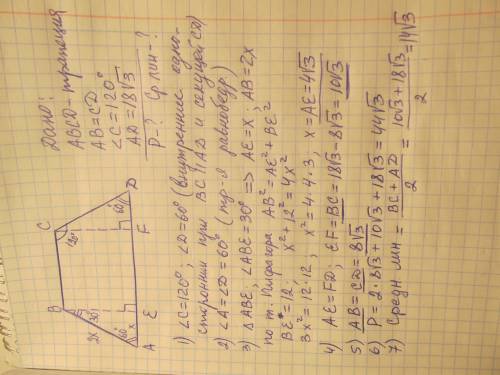 Дано:
ABCD – трапеция
AB=CD
∠C=120°
AD=18√3
P-? Ср лин-?
B
C
120°
30°
2x
60°
x
60°
A
E
F
D
1) ∠C=120°, ∠D=60° (внутренние одно-
сторонние при BC∥AD и секущей CD)
2) ∠A=∠D=60° (тр-я равнобедр.)
3) △ABE, ∠ABE=30° => AE=x, AB=2x
по т. Пифагора AB²=AE²+BE²
BE=12, x²+12²=4x²
3x²=12·12, x²=4·4·3, x=AE=4√3
4) AE=FD; EF=BC=18√3-8√3=10√3
5) AB=CD=8√3
6) P=2·8√3+10√3+18√3=44√3
7) Средн лин = BC+AD/2 = 10√3+18√3/2 =14√3